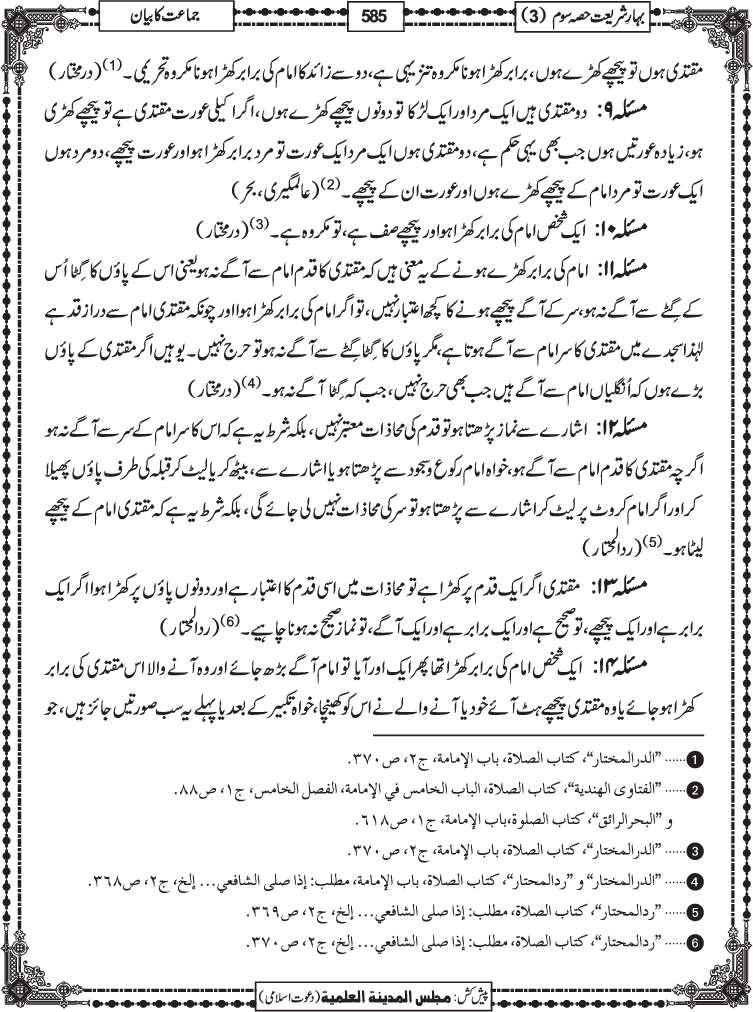 بہار شریعت حصہ سوم (3)
585
جماعت کا بیان
مقتدی ہوں تو پیچھے کھڑے ہوں، برابر کھڑا ہونا مکروہ تنزیہی ہے، دو سے زائد کا امام کی برابر کھڑا ہونا مکروہ تحریمی۔(1) (درمختار)
مسئلہ ۹: دو مقتدی ہیں ایک مرد اور ایک لڑکا تو دونوں پیچھے کھڑے ہوں، اگر اکیلی عورت مقتدی ہے تو پیچھے کھڑی
ہو، زیادہ عورتیں ہوں جب بھی یہی حکم ہے، دو مقتدی ہوں ایک مرد ایک عورت تو مرد برابر کھڑا ہو اور عورت پیچھے، دو مرد ہوں
ایک عورت تو مرد امام کے پیچھے کھڑے ہوں اور عورت ان کے پیچھے۔(2) (عالمگیری، بحر)
مسئلہ ۱۰: ایک شخص امام کی برابر کھڑا ہو اور پیچھے صف ہے، تو مکروہ ہے۔(3) (درمختار)
مسئلہ ۱۱: امام کی برابر کھڑے ہونے کے یہ معنی ہیں کہ مقتدی کا قدم امام سے آگے نہ ہو یعنی اس کے پاؤں کا گِٹا اُس
کے گِٹے سے آگے نہ ہو، سر کے آگے پیچھے ہونے کا کچھ اعتبار نہیں، تو اگر امام کی برابر کھڑا ہوا اور چونکہ مقتدی امام سے دراز قد ہے
لہٰذا سجدے میں مقتدی کا سر امام سے آگے ہوتا ہے، مگر پاؤں کا گِٹا گِٹے سے آگے نہ ہو تو حرج نہیں۔ یوہیں اگر مقتدی کے پاؤں
بڑے ہوں کہ اُنگلیاں امام سے آگے ہیں جب بھی حرج نہیں، جب کہ گِٹا آگے نہ ہو۔(4) (درمختار)
مسئلہ ۱۲: اشارے سے نماز پڑھتا ہو تو قدم کی محاذات معتبر نہیں، بلکہ شرط یہ ہے کہ اس کا سر امام کے سر سے آگے نہ ہو
اگرچہ مقتدی کا قدم امام سے آگے ہو، خواہ امام رکوع و سجود سے پڑھتا ہو یا اشارے سے، بیٹھ کر یا لیٹ کر قبلہ کی طرف پاؤں پھیلا
کر اور اگر امام کروٹ پر لیٹ کر اشارے سے پڑھتا ہو تو سر کی محاذات نہیں لی جائے گی، بلکہ شرط یہ ہے کہ مقتدی امام کے پیچھے
لیٹا ہو۔(5) (ردالمحتار)
مسئلہ ۱۳: مقتدی اگر ایک قدم پر کھڑا ہے تو محاذات میں اسی قدم کا اعتبار ہے اور دونوں پاؤں پر کھڑا ہو اگر ایک
برابر ہے اور ایک پیچھے، تو صحیح ہے اور ایک برابر ہے اور ایک آگے، تو نماز صحیح نہ ہونا چاہیے۔(6) (ردالمحتار)
مسئلہ ۱۴: ایک شخص امام کی برابر کھڑا تھا پھر ایک اور آیا تو امام آگے بڑھ جائے اور وہ آنے والا اس مقتدی کی برابر
کھڑا ہو جائے یا وہ مقتدی پیچھے ہٹ آئے خود یا آنے والے نے اس کو کھینچا، خواہ تکبیر کے بعد یا پہلے یہ سب صورتیں جائز ہیں، جو
1 ...... ”الدرالمختار“، کتاب الصلاة، باب الإمامة، ج۲، ص۳۷۰.
2 ...... ”الفتاوی الھندیة“، کتاب الصلاة، الباب الخامس في الإمامة، الفصل الخامس، ج۱، ص۸۸.
و ”البحرالرائق“، کتاب الصلوة، باب الإمامة، ج۱، ص۶۱۸.
3 ...... ”الدرالمختار“، کتاب الصلاة، باب الإمامة، ج۲، ص۳۷۰.
4 ...... ”الدرالمختار“ و ”ردالمحتار“، کتاب الصلاة، باب الإمامة، مطلب: إذا صلی الشافعي... إلخ، ج۲، ص۳۶۸.
5 ...... ”ردالمحتار“، کتاب الصلاة، مطلب: إذا صلی الشافعي... إلخ، ج۲، ص۳۶۹.
6 ...... ”ردالمحتار“، کتاب الصلاة، مطلب: إذا صلی الشافعي... إلخ، ج۲، ص۳۷۰.
پیش کش: مجلس المدینة العلمیة (دعوت اسلامی)